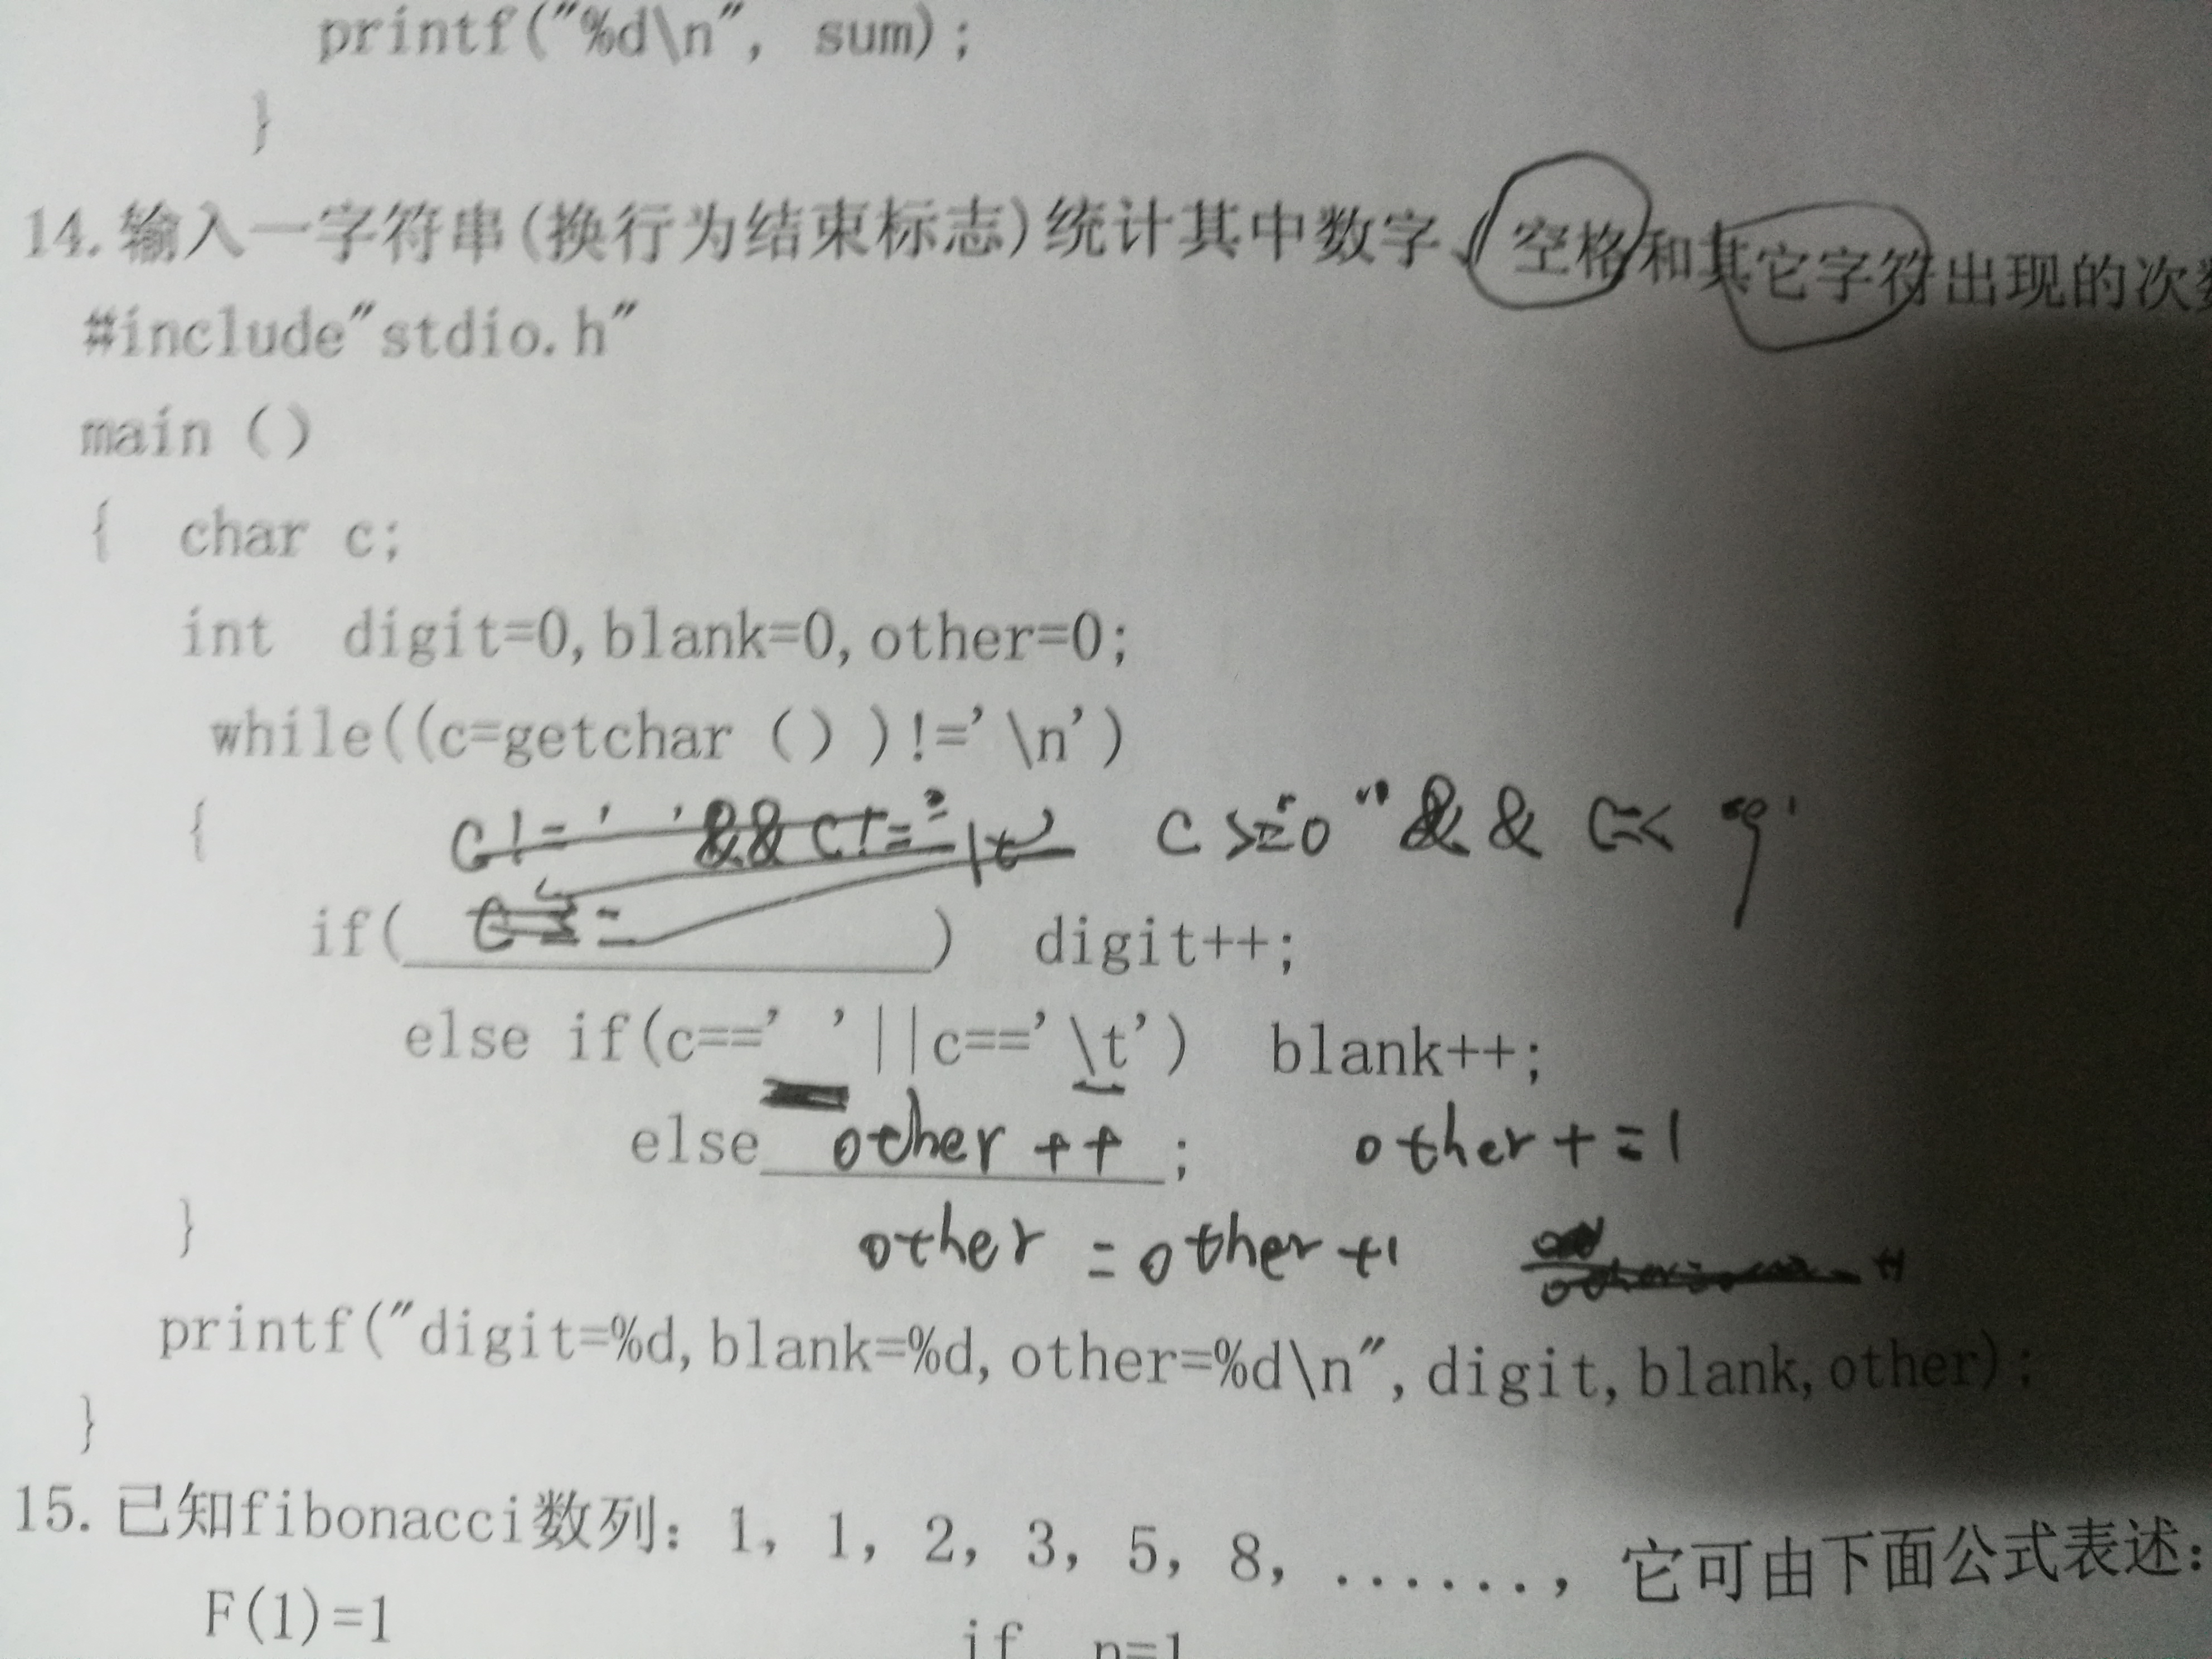 printf("%d\n", sum);
}
14.输入一字符串(换行为结束标志)统计其中数字、空格和其它字符出现的次
#include"stdio.h"
main ()
{ char c;
int digit=0,blank=0,other=0;
while((c=getchar ())!='\n')
{ c!=' '&&c!='\t' c>='0'&& c=<'9'
if( ) digit++;
else if(c==' '||c=='\t') blank++;
else other++; other+=1
} other=other+1
printf("digit=%d,blank=%d,other=%d\n",digit,blank,other);
}
15.已知fibonacci数列: 1, 1, 2, 3, 5, 8, ......, 它可由下面公式表述:
F(1)=1 if n=1